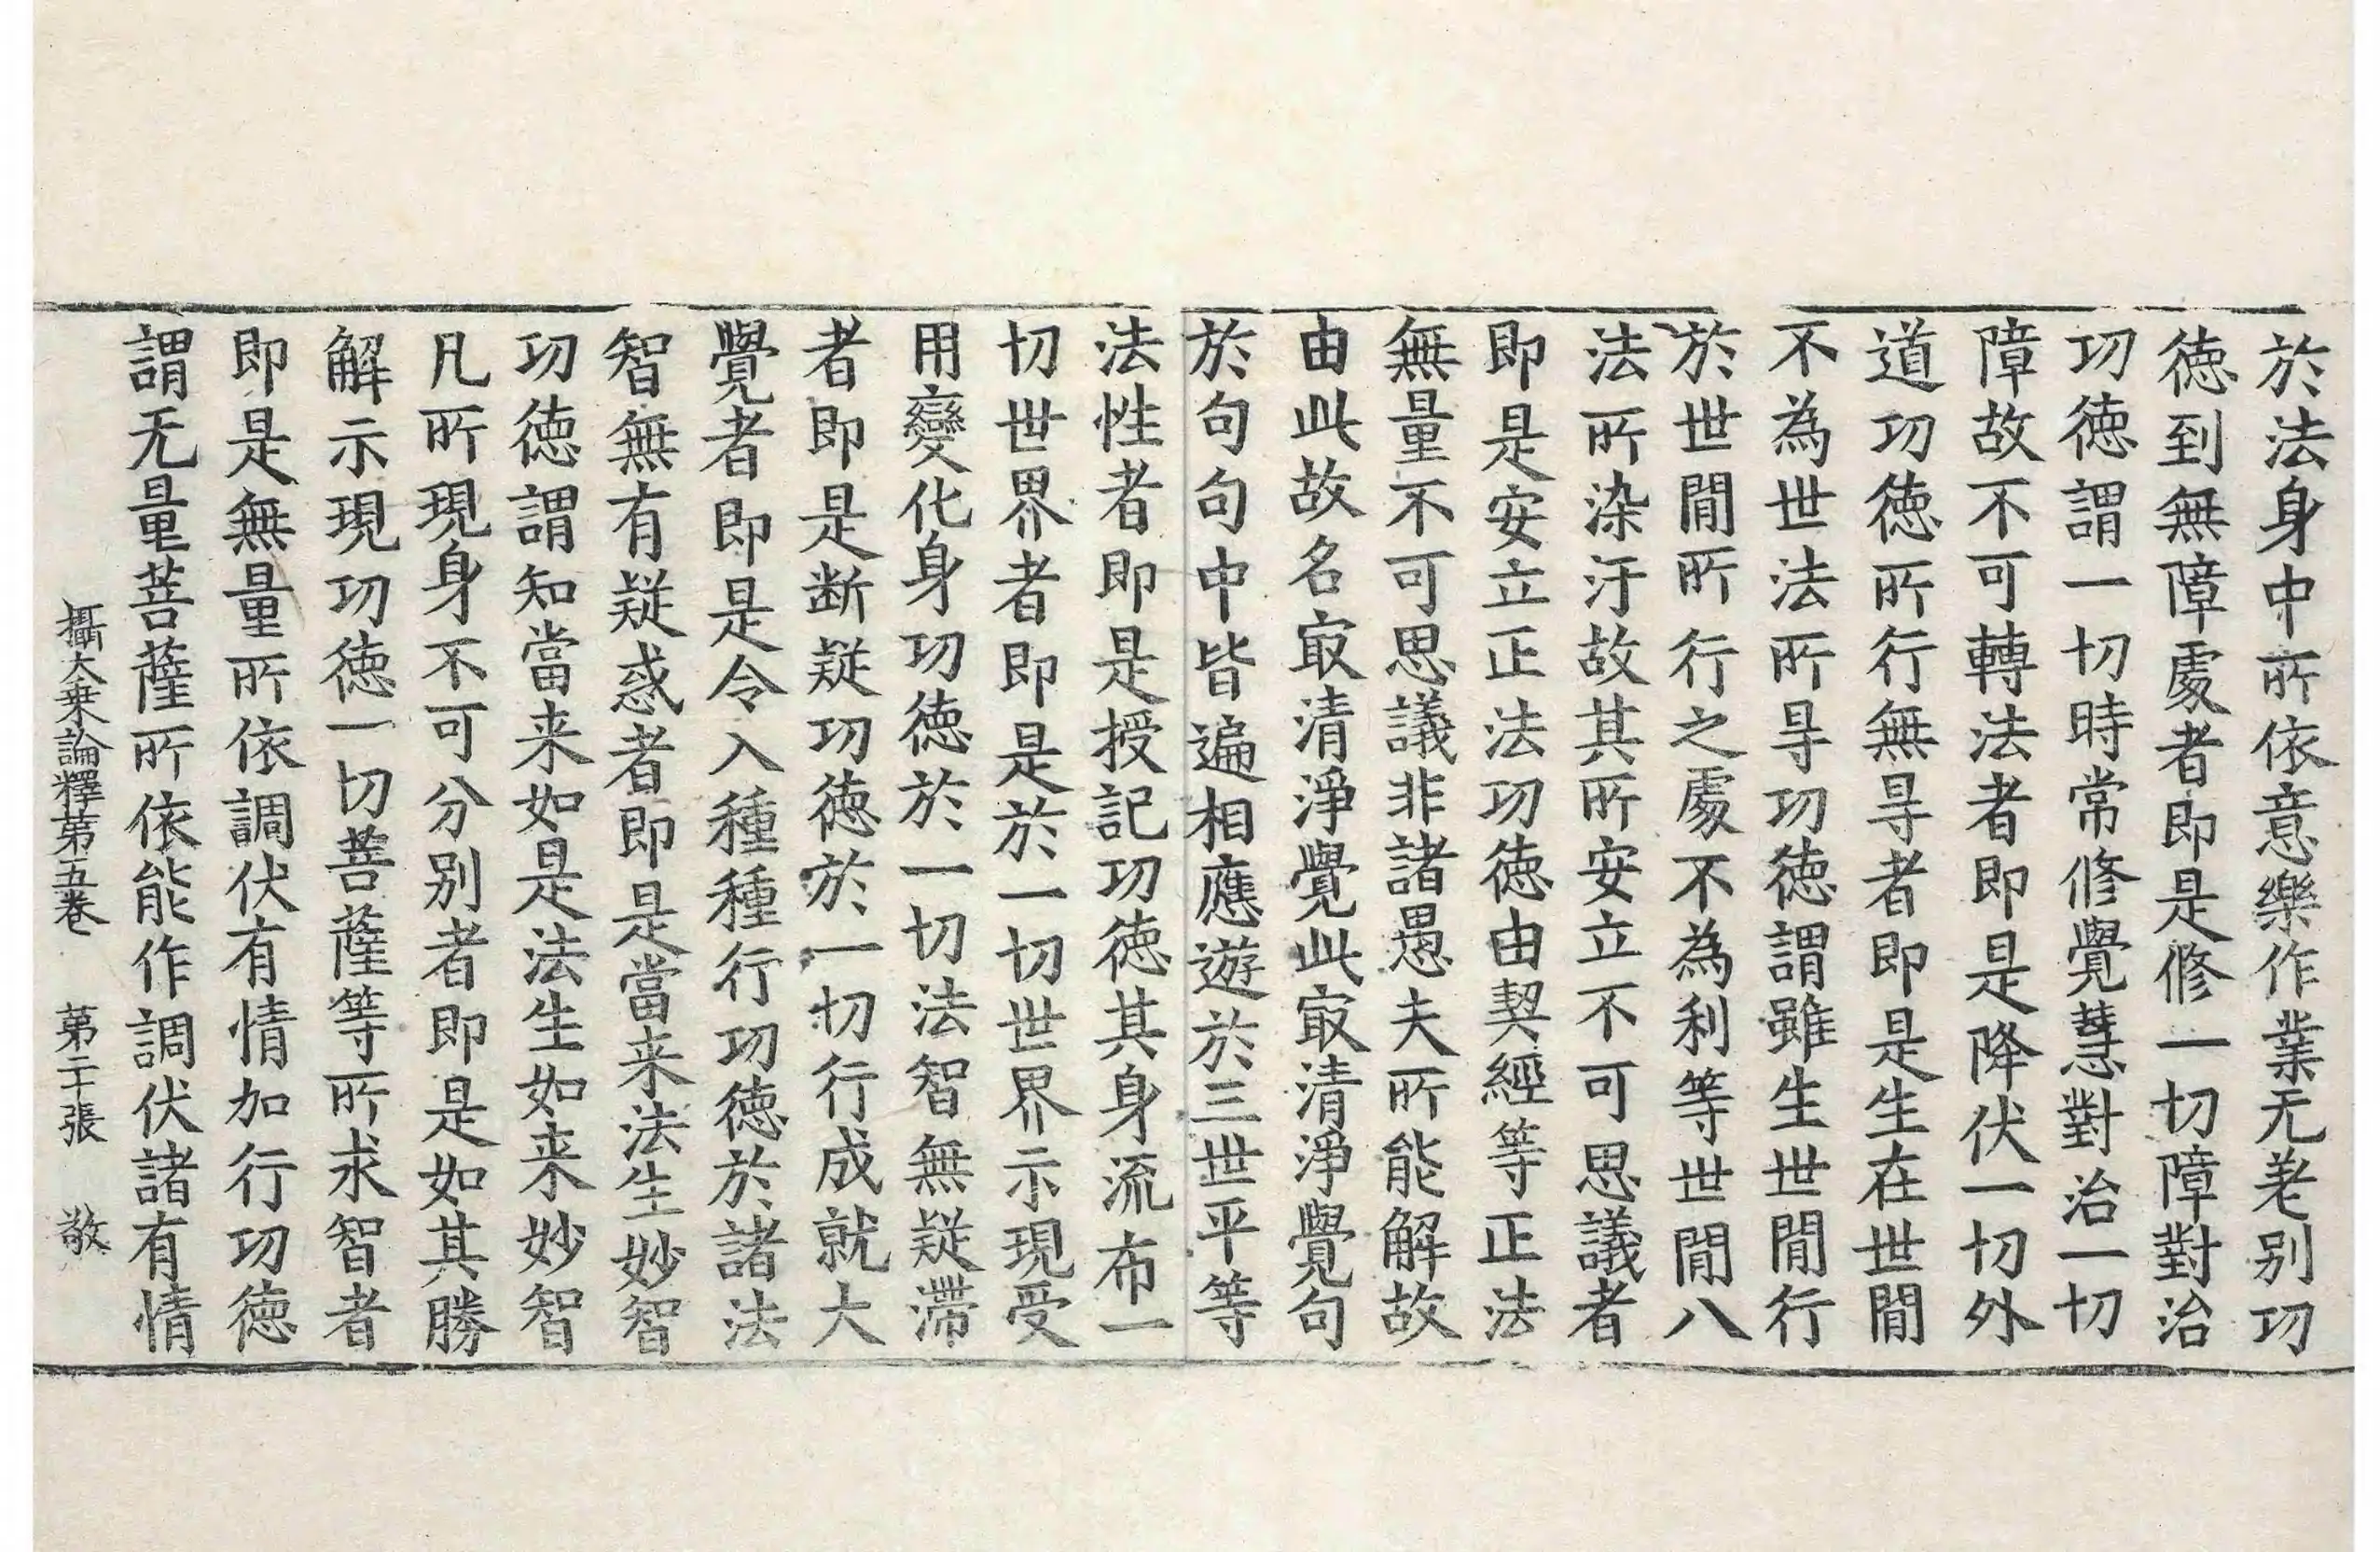 於法身中所依意樂作業无差别功
徳到無障處者即是修一切障對治
功徳謂一切時常修覺慧對治一切
障故不可轉法者即是降伏一切外
道功徳所行無㝵者即是生在世間
不為世法所㝵功徳謂雖生世間行
於世間所行之處不為利等世間八
法所染汙故其所安立不可思議者
即是安立正法功徳由契經等正法
無量不可思議非諸愚夫所能解故
由此故名㝡清淨覺此㝡清淨覺句
於句句中皆遍相應遊於三世平等
法性者即是授記功徳其身流布一
切世界者即是於一切世界示現受
用變化身功徳於一切法智無疑滯
者即是断疑功徳於一切行成就大
覺者即是令入種種行功徳於諸法
智無有疑惑者即是當来法生妙智
功徳謂知當来如是法生如来妙智
凡所現身不可分别者即是如其勝
解示現功徳一切菩薩等所求智者
即是無量所依調伏有情加行功徳
謂无量菩薩所依能作調伏諸有情
攝大乗論釋第五卷 第二十張 敬